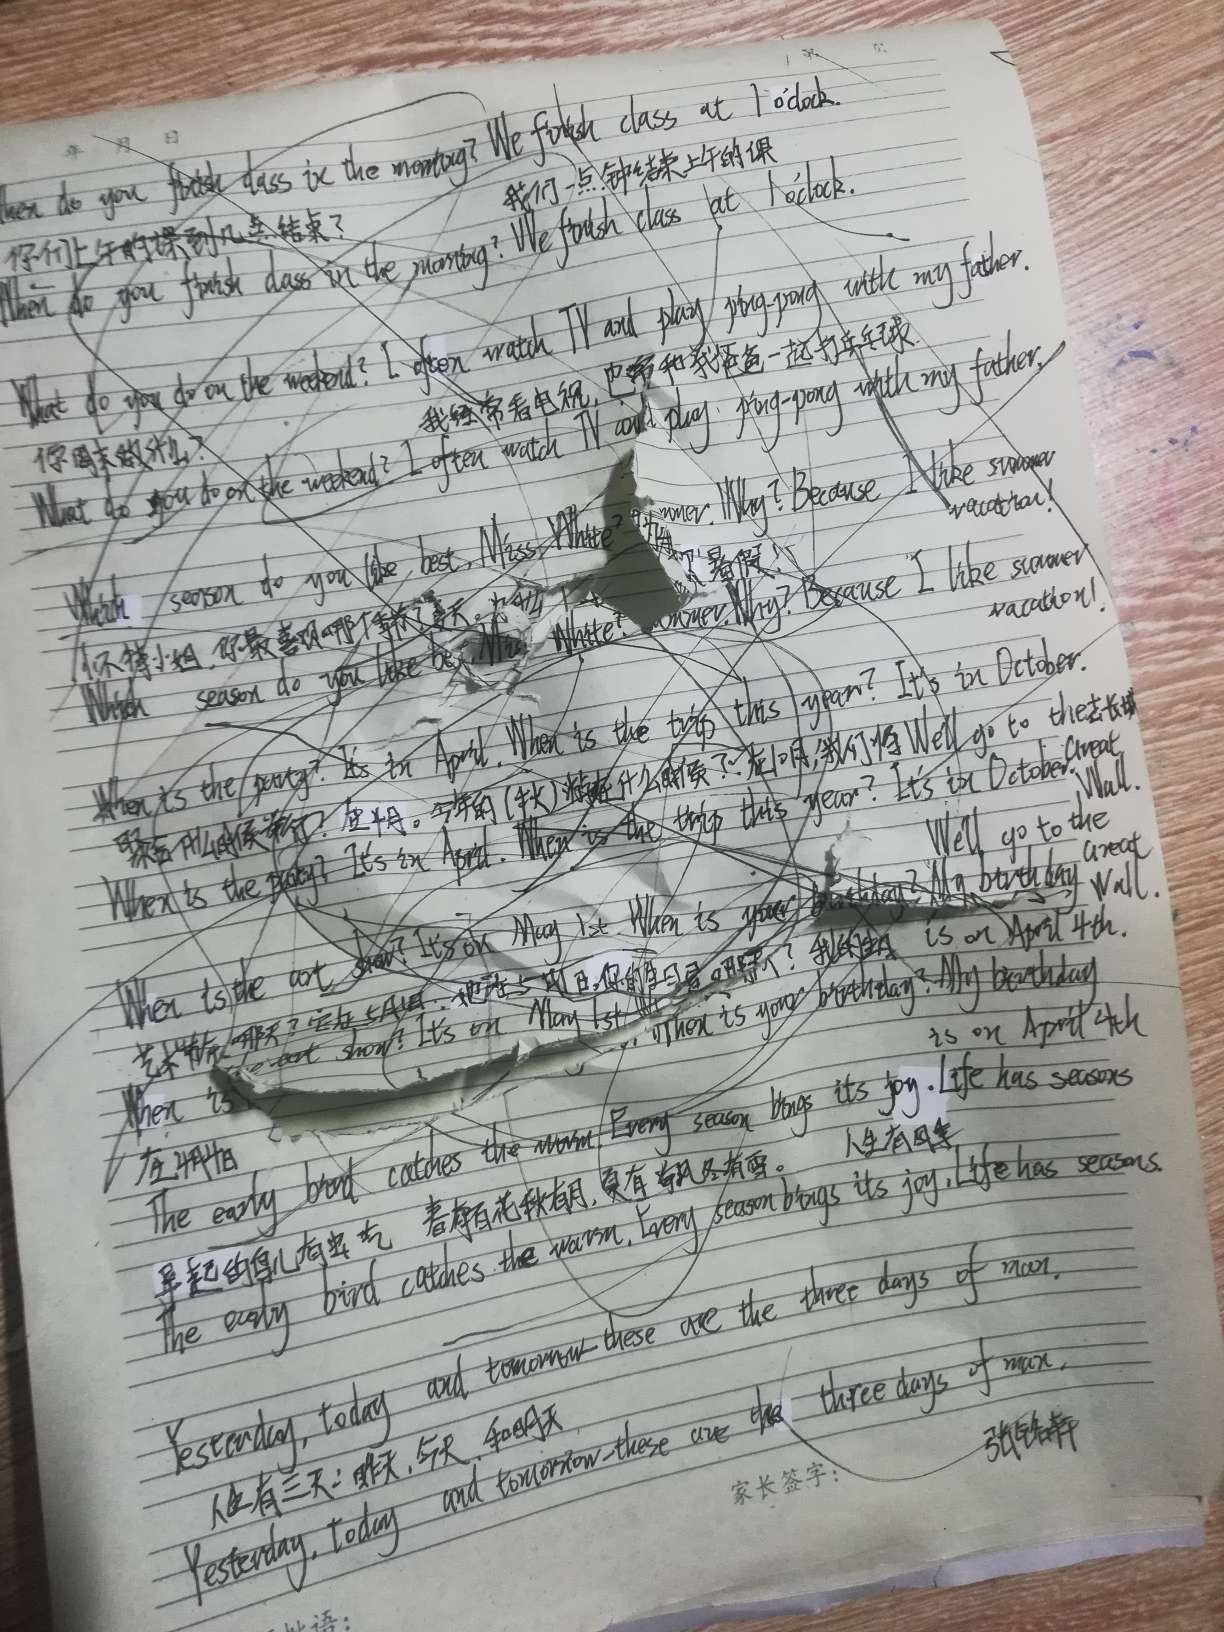 第 页
年 月 日
When do you finish class in the morning? We finish class at 1 o'clock.
你们上午的课到几点结束? 我们一点钟结束上午的课
When do you finish class in the morning? We finish class at 1 o'clock.
What do you do on the weekend? I often watch TV and play ping-pong with my father.
你周末做什么? 我经常看电视,也常和我爸爸一起打乒乓球.
What do you do on the weekend? I often watch TV and play ping-pong with my father.
Which season do you like best, Miss White? Why? Because I like summer
vacation!
怀特小姐,你最喜欢哪个季节?夏天。 暑假!
Which season do you like White? Why? Because I like summer
vacation!
When is the party? It's in April. When is the trip this year? It's in October.
We'll go to the
Great
Wall.
在四月。今年的(秋)游在什么时候?在10月,我们将 去长城
When is the party? It's in April. When is the trip this year? It's in October.
We'll go to the
Great
Wall.
When is the art show? It's on May 1st. When is your birthday? My birthday
is on April 4th.
哪天?它在5月1日. 我的生日
When is show? It's on May 1st. When is your birthday? My birthday
is on April 4th
在4月4日
The early bird catches the worm. Every season brings its joy. Life has seasons
早起的鸟儿有虫吃 春有百花秋有月,夏有凉风冬有雪。 人生有四季
The early bird catches the worm. Every season brings its joy. Life has seasons.
Yesterday, today and tomorrow—these are the three days of man.
人生有三天:昨天,今天,和明天
Yesterday, today and tomorrow—these are the three days of man.
家长签字: